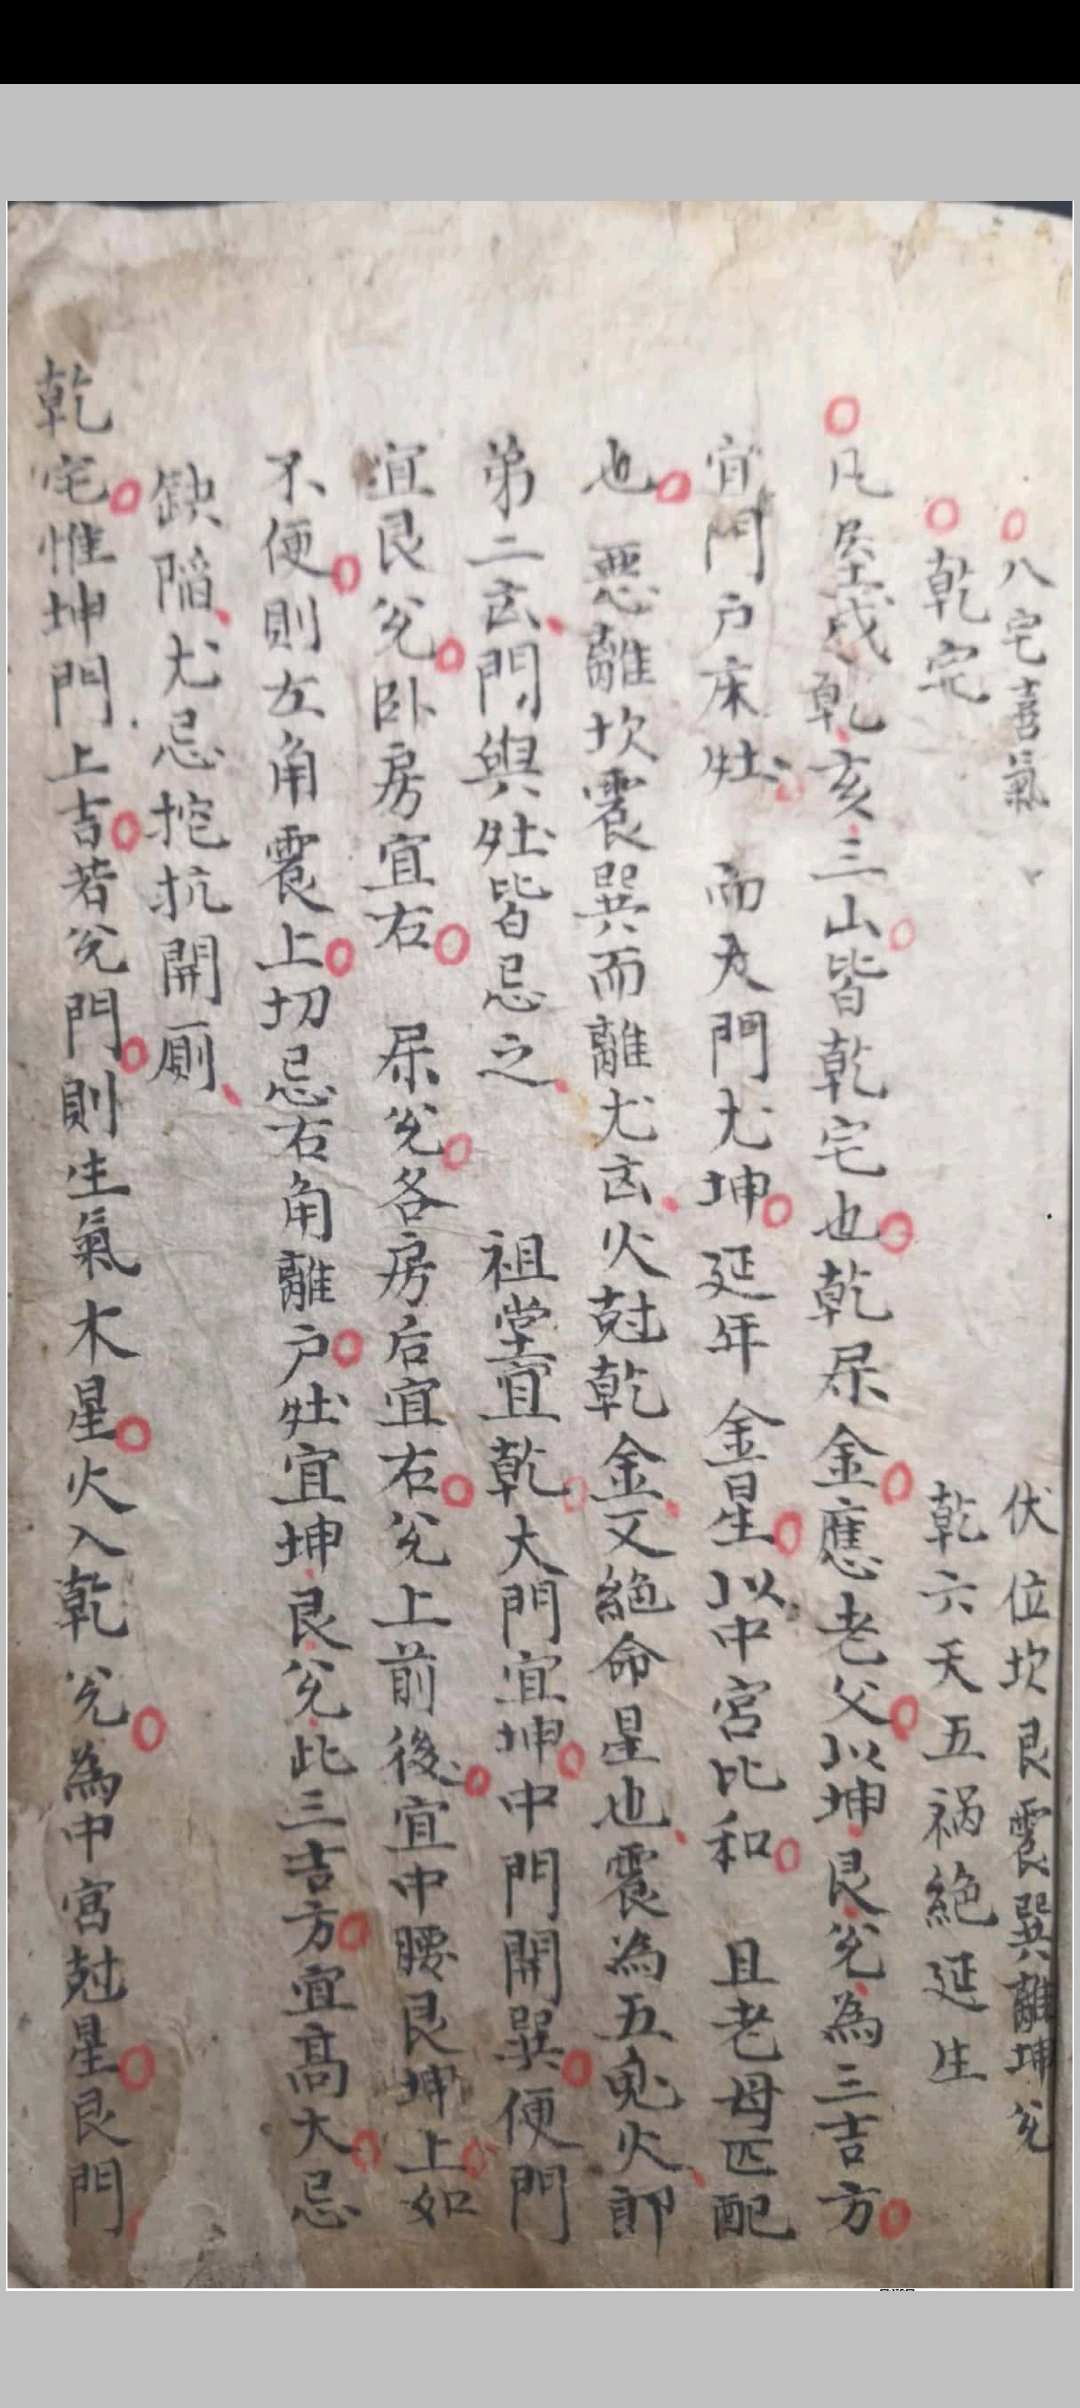 八宅喜氣 伏位坎艮震巽離坤兌
乾宅 乾六天五祸絕延生
凡屋戌乾亥三山皆乾宅也乾屬金應老父以坤艮兌為三吉方
宜門户床灶 而大門尤坤延年金星以中宮比和 且老母匹配
也 惡離坎震巽而離尤凶火尅乾金又絕命星也震為五鬼火即
弟二凶門與灶皆忌之 祖堂宜乾大門宜坤中門開巽便門
宜艮兌卧房宜右 屬兌各房后宜右兌上前後宜中腰艮坤上如
不便則左角震上切忌右角離户灶宜坤艮兌此三吉方宜高大忌
缺陷尤忌挖抗開厠
乾宅惟坤門上吉若兌門則生氣木星火入乾兌為中宮尅星艮門